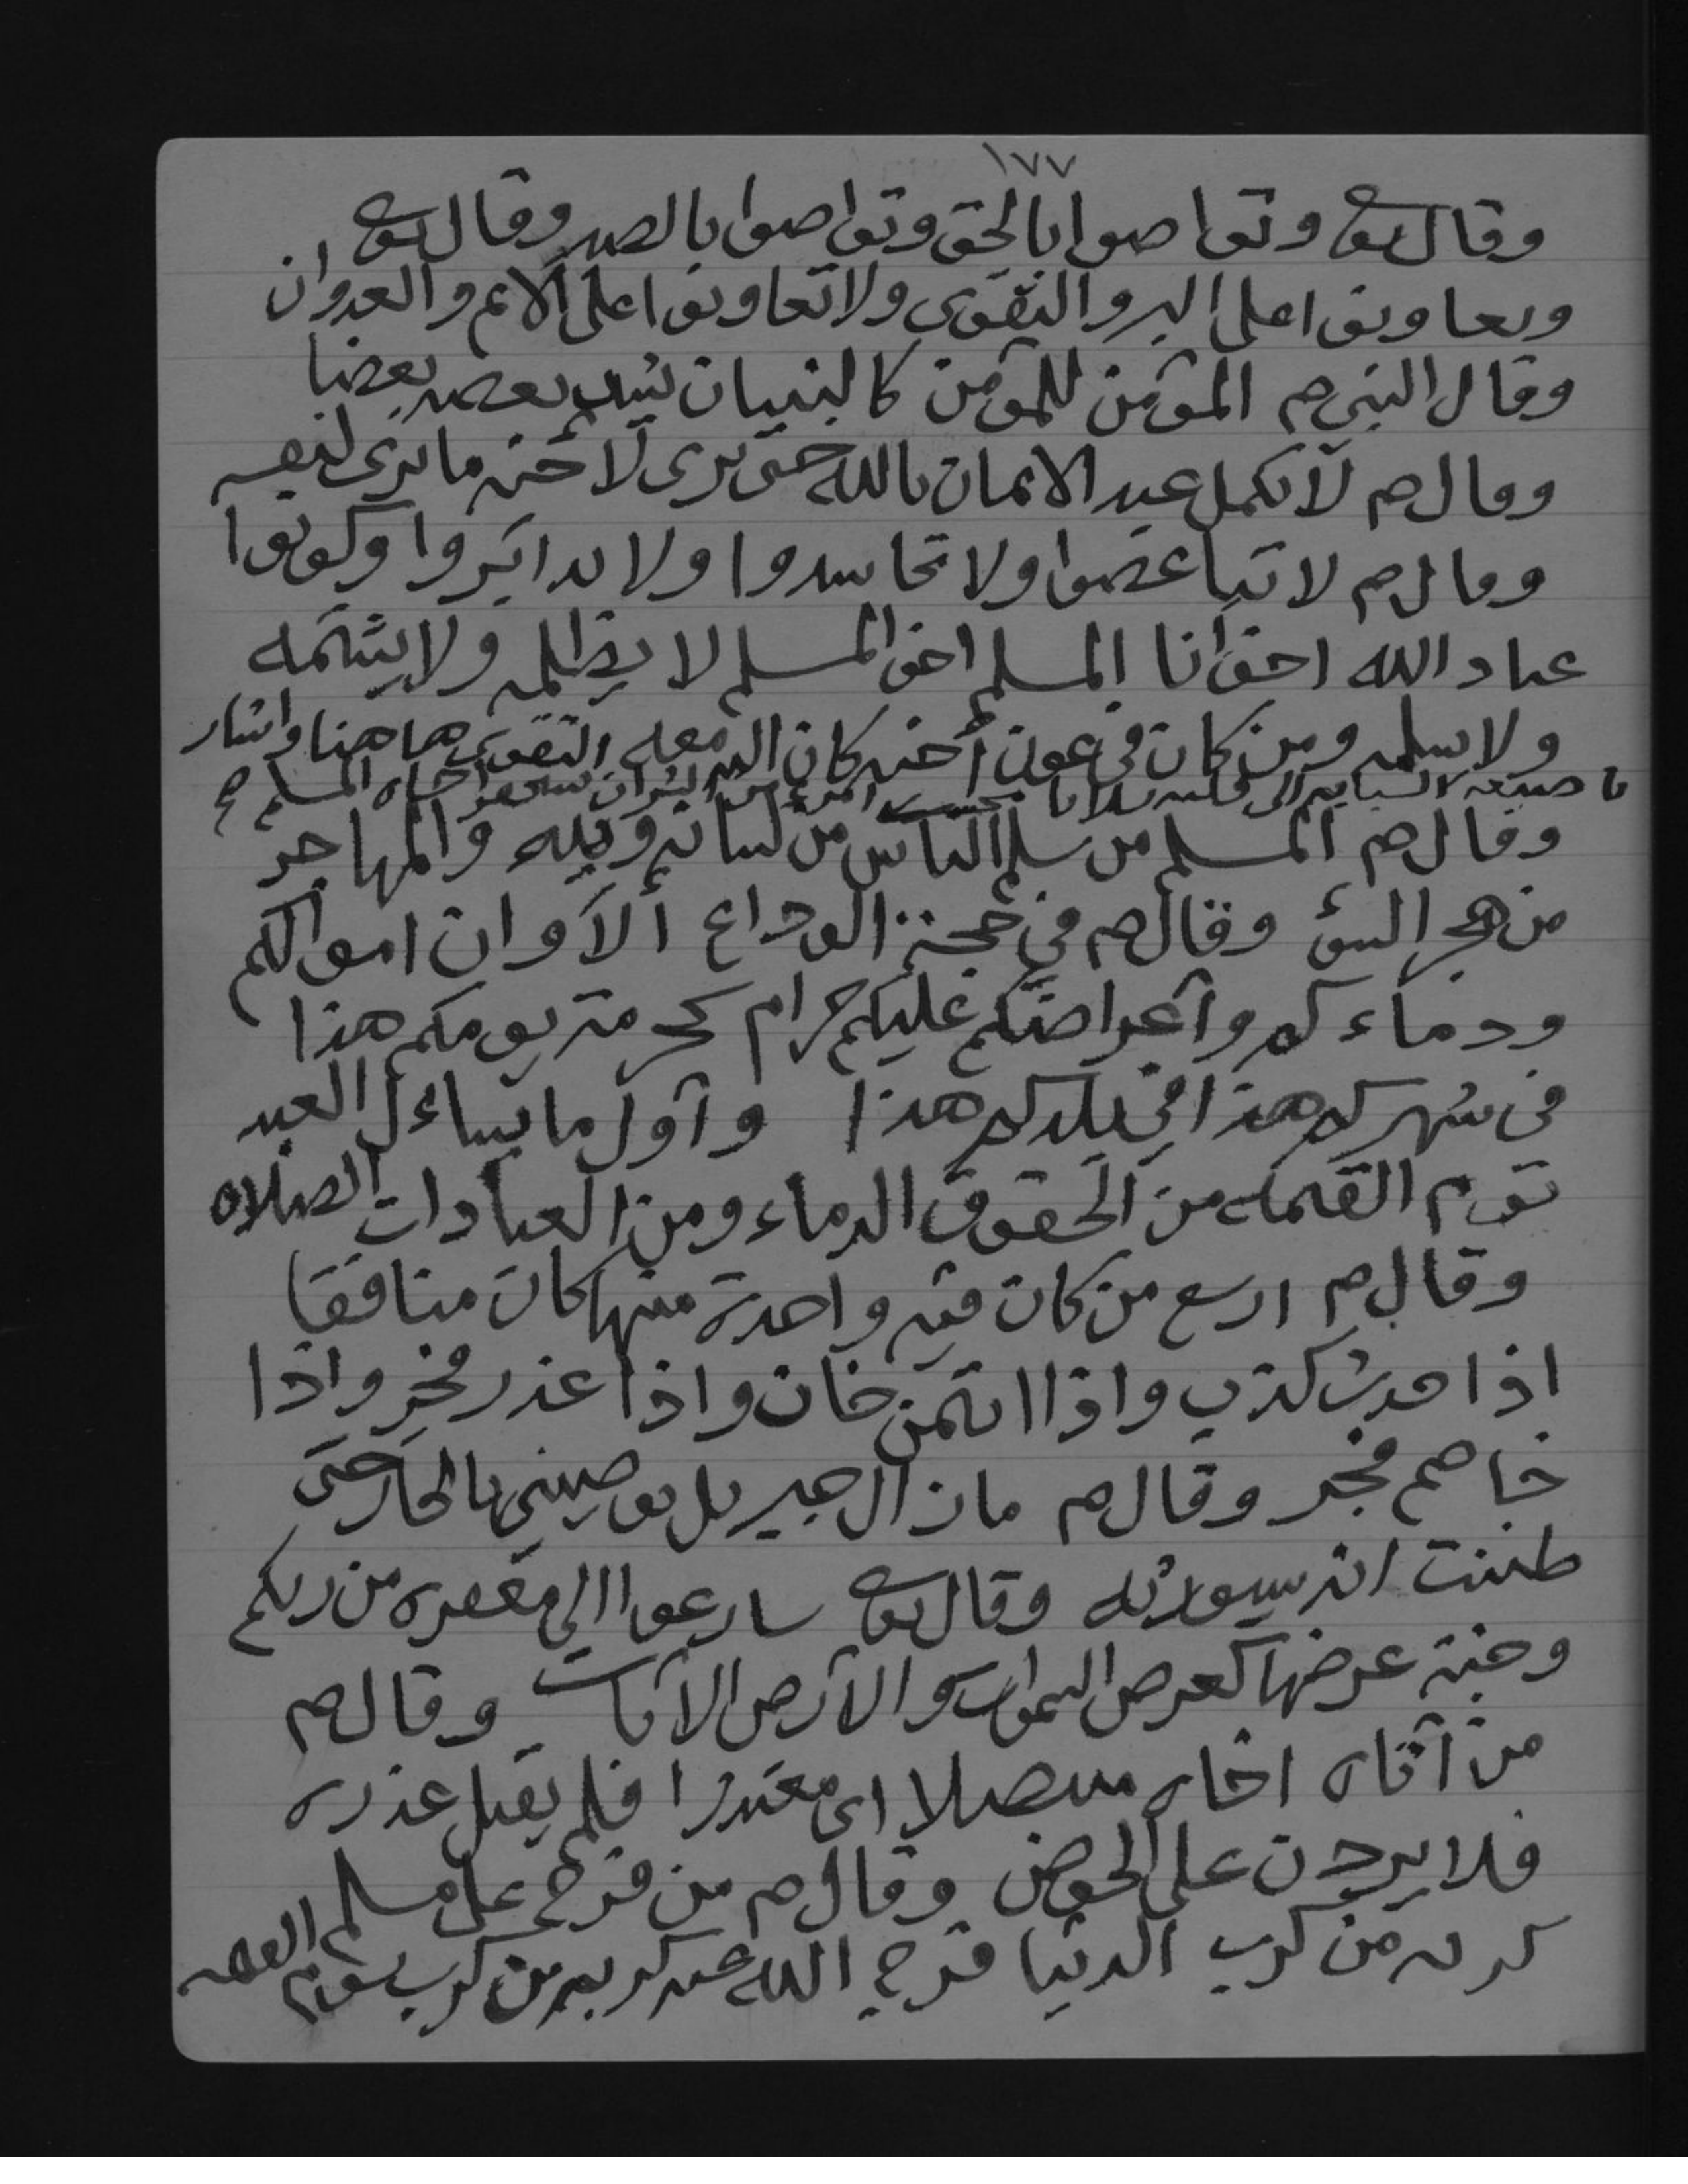 ١٧٧
وقال تعالى وتواصوا بالحق وتواصوا بالصبر وقال تعالى
وتعاونوا على البر والتقوى ولا تعاونوا على الاثم والعدوان
وقال النبي صم المؤمن للمؤمن كالبنيان يشد بعضه بعضا
وقال صم لا يكمل عبد الايمان بالله حتى يرى لأخيه ما يرى لنفسه
وقال صم لا تباغضوا ولا تحاسدوا ولا تدابروا وكونوا
عباد الله اخوانا المسلم اخو المسلم لا يظلمه ولا يشتمه
ولا يسلمه ومن كان في عون أخيه كان الله معه التقوى هاهنا واشار
باصبعه السبابه الى قلبه ثلاثا بحسب امرء من الشر ان يحقر اخاه المسلم صح
وقال صم المسلم من سلم الناس من لسانه ويده والمهاجر
من هجر السوء وقال صم في حجة الوداع ألآ وان اموالكم
ودماءكم وأعراضكم عليكم حرام كحرمة يومكم هذا
في شهركم هذا في بلدكم هذا وأول ما يساءل العبد
يوم القيمة من الحقوق الدماء ومن العبادات الصلاه
وقال صم اربع من كان فيه واحدة منها كان منافقا
اذا حدث كذب واذا اتمن خان واذا عذر فجر واذا
خاصم فجر وقال صم مازال جبريل يوصيني بالجار حتى
ظننت انه سيورثه وقال تعالى سارعوا الى مغفره من ربكم
وجنة عرضها كعرض السموات والأرض الآيات وقال صم
من أتاه اخاه متنصلا اى معتذرا فلم يقبل عذره
فلا يردن على الحوض وقال صم من فرج على مسلم
كربه من كرب الدنيا فرج الله عنه كربه من كرب يوم القيمه